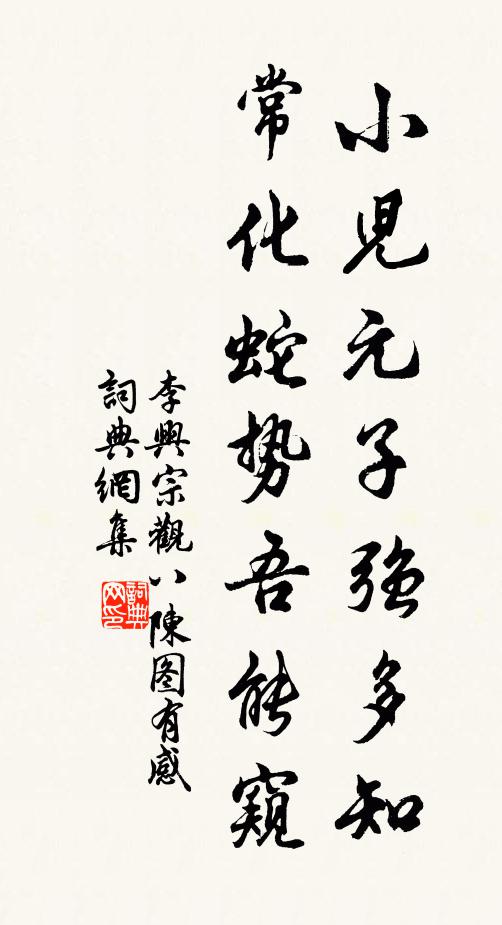 小児元子強多知
常化蛇勢吾能窺
李興宗觀八陳图有感
詞典網集
詞典网印